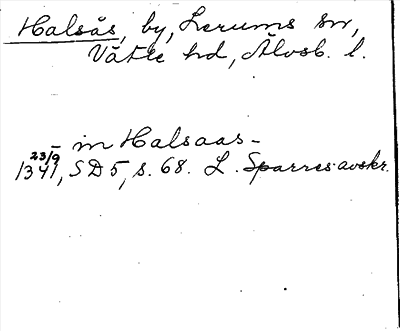 Halsås, by, Lerums sn,
Vätle hd, Älvsb. l.
– in Halsaas –
23/9
1341, SD 5, s. 68. L. Sparres avskr.